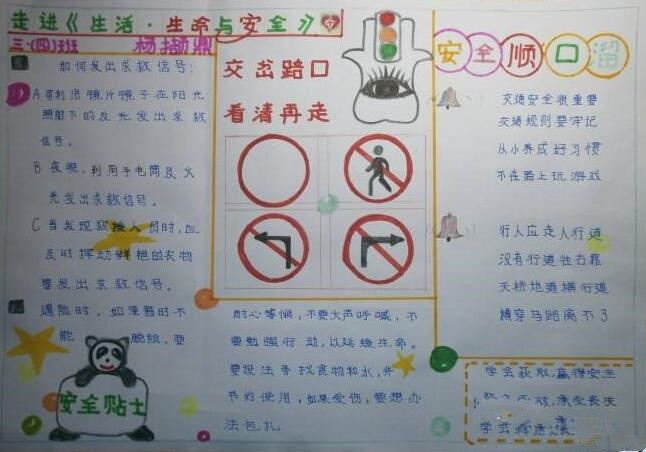 走进《生活·生命与安全》
三·(四)班 杨撷鼎
如何发出求救信号:
A 可利用镜片镜子在阳光
照射下的反光发出求救
信号。
B 夜晚,利用手电筒及火
光发出求救信号。
C 当发现救援人员时,应
及时挥动鲜艳的衣物
等发出求救信号。
遇险时,如果暂时不
能 脱险,要
安全贴士
交岔路口
看清再走
耐心等候,不要大声呼喊,不
要勉强行动,以延续生命。
要设法寻找食物和水,并
节约使用,如果受伤,要想办
法包扎。
安全顺口溜
交通安全很重要
交通规则要牢记
从小养成好习惯
不在路上玩游戏
行人应走人行道
没有行道往右靠
天桥地道横行道
横穿马路离不了
学会获取,赢得安全
学会